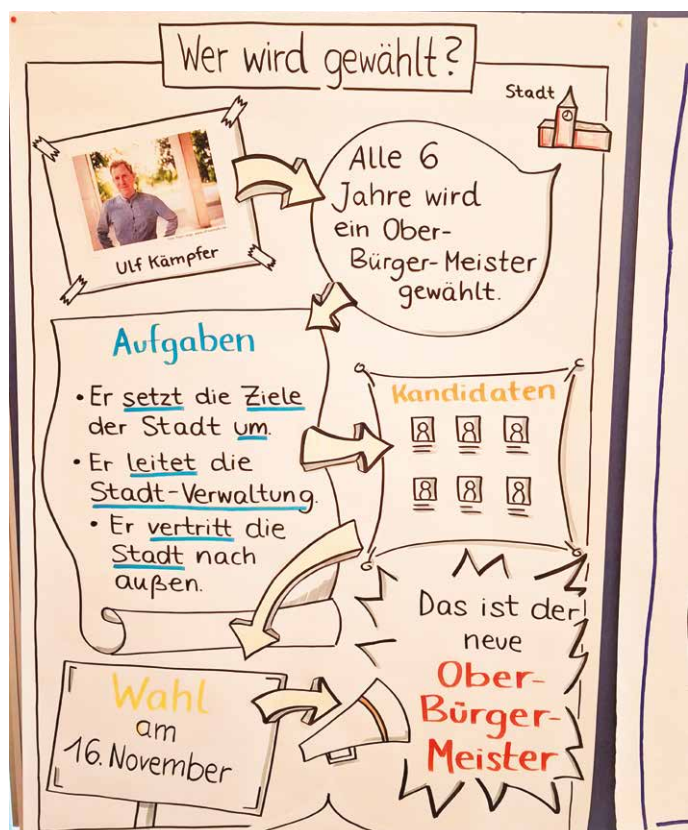 Wer wird gewählt?
Stadt
Ulf Kämpfer
Alle 6
Jahre wird
ein Ober-
Bürger-Meister
gewählt.
Aufgaben
• Er setzt die Ziele
der Stadt um.
• Er leitet die
Stadt-Verwaltung.
• Er vertritt die
Stadt nach
außen.
Kandidaten
Wahl
am
16. November
Das ist der
neue
Ober-
Bürger-
Meister